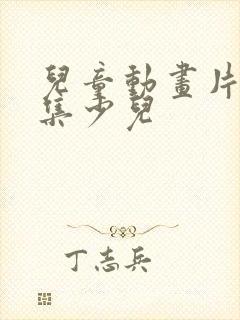 兒童動畫片
集少兒
丁志兵